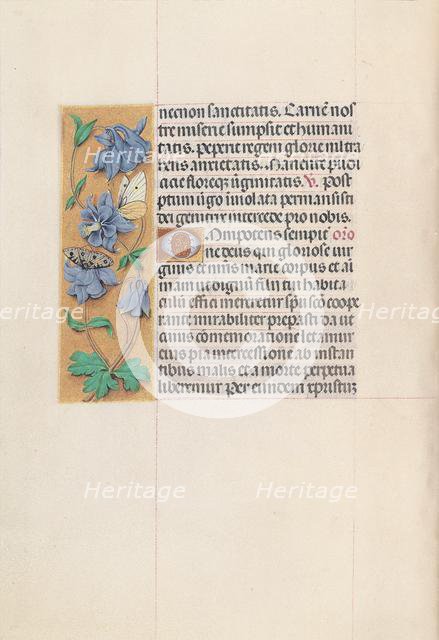 necnon sanctitatis. Carnē nos
tre miserie sumpsit et humani
tatis. Peperit regem glorie mitra
anxietatis. Manente pudi
cicie floreqȝ ūginitatis. V. Post
ptum ūgo īuiolata permansisti
dei genitrix intercede pro nobis.
Omnipotens sempit̄ oro
ne deus qui gloriose uir
ginis et mr̄is marie corpus et ai
mam ut dignū filii tui habita
culū effici mereret̄ spū sco coope
rante mirabiliter preparasti da ut
cuius cōmemoratione letamur
eius pia intercessione ab instan
tibus malis et a morte perpetua
liberemur Per eundem xpristū
Heritage Heritage
Heritage Heritage
Heritage Heritage